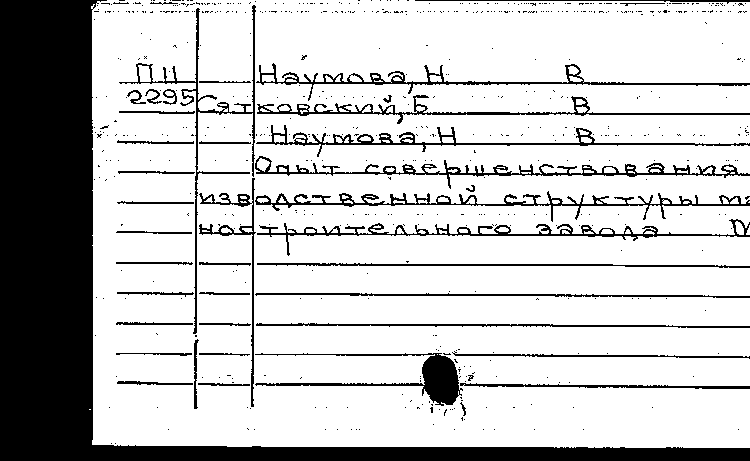 П 11 Наумова, Н В
2295 Сятковский, Б В
Наумова, Н В
Опыт совершенствования
изводственной структуры ма
ностроительного завода. М